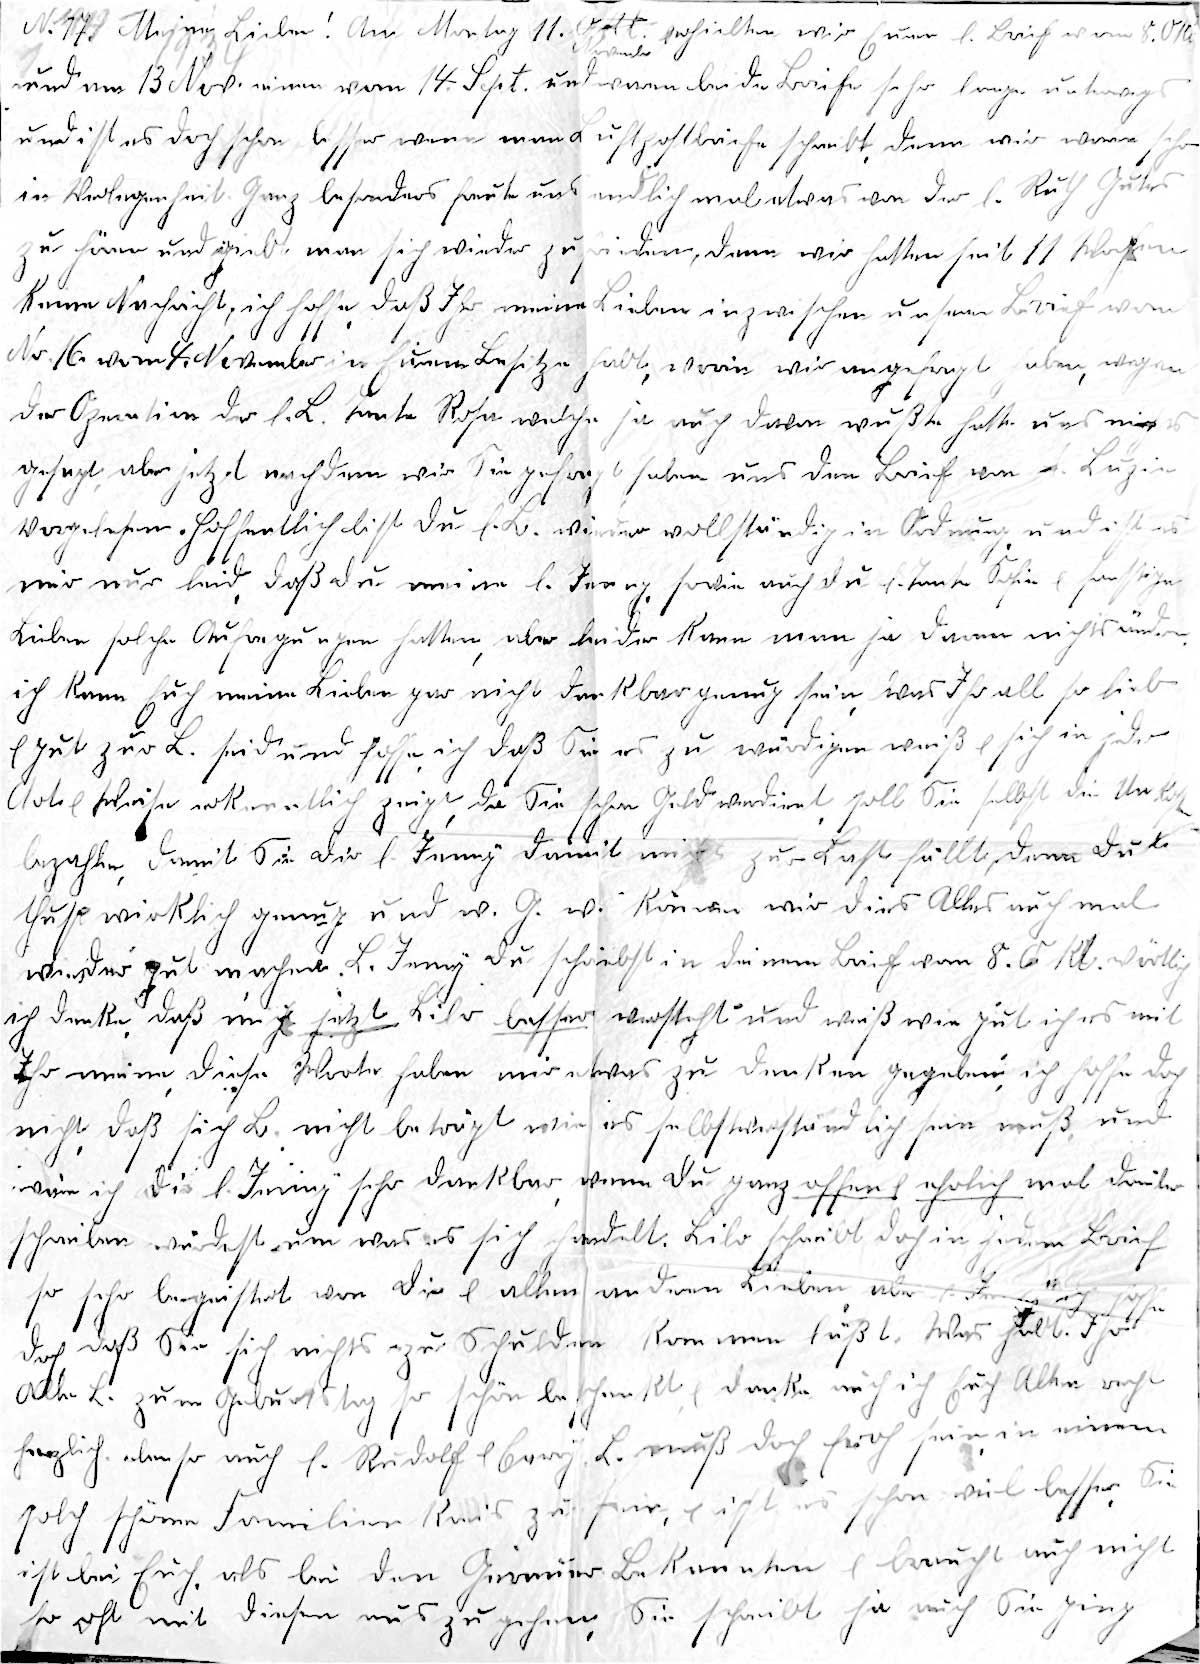 No. 17) Meine Lieben! Am Montag 11. November erhielten wir Euren l. Brief vom 8. Okt.
und am 13 Nov. einen vom 14. Sept. und waren beide Briefe sehr lange unterwegs
und ist es doch schon besser wenn man Luftpostbriefe schreibt, denn wir waren sehr
in Verlegenheit. Ganz besonders freute uns endlich mal etwas von der l. Ruth Gutes
zu hören und gieb. man sich wieder zufrieden, denn wir hatten seit 11 Wochen
keine Nachricht, ich hoffe, daß Ihr meine Lieben inzwischen unseren Brief vom
Nr. 16. vom 4. November in Eurem Besitze habt, worin wir angefragt haben, wegen
der Operation der l. L. Tante Rosa welche ja auch davon wußte hatte uns nichts
gesagt, aber jetzt nachdem wir Sie gefragt haben uns den Brief von l. Luzie
vorgelesen. Hoffentlich bist Du l. L. wieder vollständig in Ordnung und ist es
mir nur leid, daß du meine l. Jenny, sowie auch du l. Tante Sofie & sonstige
Lieben solche Aufregungen hatten, aber leider kann man ja daran nichts ändern.
ich kann Euch meine Lieben gar nicht dankbar genug sein, was Ihr all so lieb
& gut zur L. seid und hoffe ich daß Sie es zu würdigen weiß & sich in jeder
Art & Weise erkenntlich zeigt, da Sie schon Geld verdient, soll Sie selbst die Unkosten
bezahlen, damit Sie dir l. Jenny damit nicht zur Last fällt, denn Du l.
thust wirklich genug und w. G. w. können wir dies Alles auch mal
wieder gut machen. L. Jenny Du schreibst in deinem Brief vom 8. Okt. wörtlich
ich denke, daß mich jetzt Lilo besser versteht und weiß wie gut ich es mit
Ihr meine, diese Worte haben mir etwas zu denken gegeben, ich hoffe doch
nicht, daß sich L. nicht beträgt wie es selbstverständlich sein muß, und
wäre ich Dir l. Jenny sehr dankbar, wenn Du ganz offen & ehrlich mal darüber
schreiben würdest um was es sich handelt. Lilo schreibt doch in jedem Brief
so sehr begeistert von Dir & allen anderen Lieben, aber l. Jenny ich hoffe
doch daß Sie sich nichts zu Schulden kommen läßt. Was habt Ihr
Alle L. zum Geburtstag so schön beschenkt, & danke auch ich Euch Allen recht
herzlich. ebenso auch l. Rudolf & L. muß doch froh sein, in einem
solch schönen Familien Kreis zu sein, & ist es schon viel besser, Sie
ist bei Euch, als bei den Bekannten & braucht auch nicht
so oft mit diesen auszugehen, Sie schreibt ja auch Sie ging